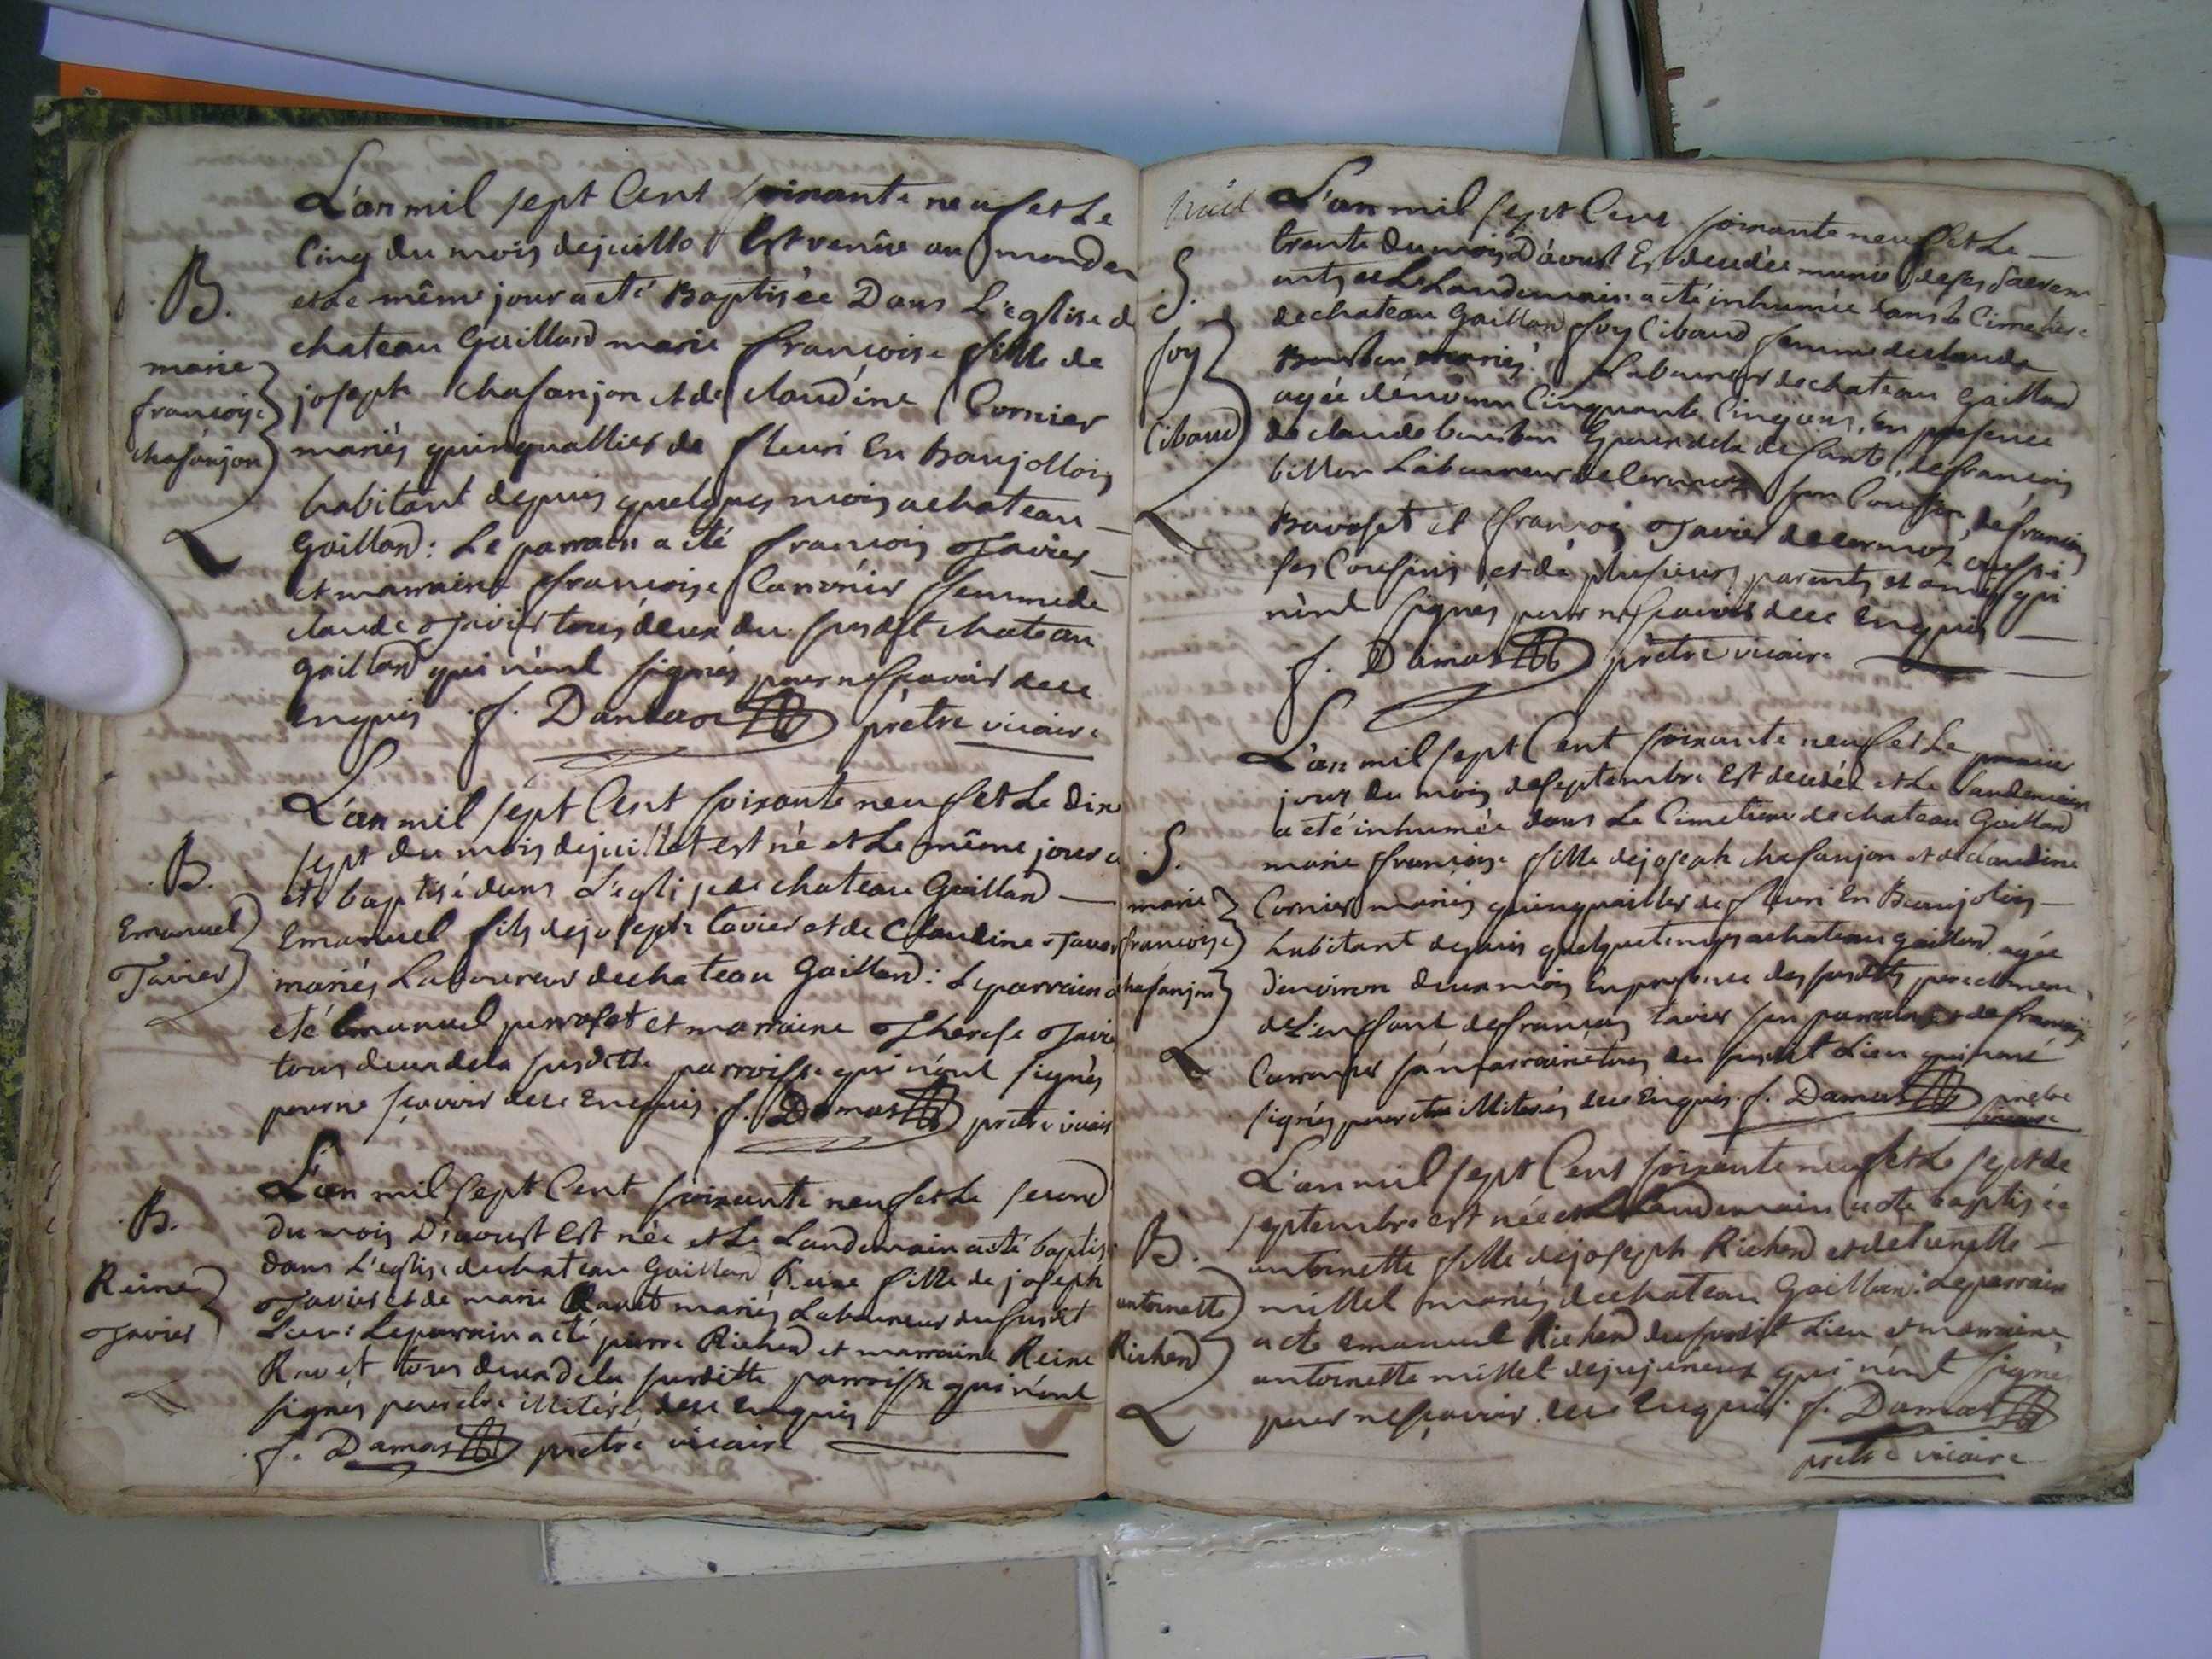 L'an mil sept Cent soixante neuf et Le
Cinq du mois de juillet Est venüe au monde
et Le même jour a eté Baptisée Dans L'eglise de
chateau Gaillard marie françoise fille de
joseph chasanjon et de claudine Cornier
mariés quinquallier de fleuri En Baujollois
habitant depuis quelques mois a chateau
Gaillard : Le parrain a eté françois Tavier
et marraine françoise Carronier femme de
claude Tavier tous deux du susdit chateau
gaillard qui n'ont signés pour ne sçavoir de ce
Enquis f. Damas prêtre vicaire
B.
marie
françoise
chasanjon
L'an mil sept Cent soixante neuf et Le dix
sept du mois de juillet est né et Le même jour a
eté baptisé dans L'eglise de chateau Gaillard
Emanuel fils de joseph tavier et de Claudine Tavier
mariés Laboureur de chateau Gaillard : Le parrain a
eté Emanuel perroset et marraine Therese Tavier
tous deux de la susditte parroisse qui n'ont signés
pour ne sçavoir de ce Enquis f. Damas prêtre vicair
B.
Emanuel
Tavier
L'an mil sept Cent soixante neuf et Le second
du mois D'aoust Est née et Le Landemain a eté baptisé
dans L'eglise de chateau Gaillard Reine fille de joseph
Tavier et de marie Ravet mariés Laboureur du susdit
Lieu : Le parrain a eté pierre Richerd et marraine Reine
Ravet tous deux de la susditte parroisse qui n'ont
signés pour etre illiteré de ce enquis
f. Damas prêtre vicaire
B.
Reine
Tavier
L'an mil sept Cent soixante neuf et Le
trente du mois D'aoust Est decedée munie de ses Sacrem
ents et Le Landemain a eté inhumée dans le Cimetiere
de chateau Gaillard foy Cibaud femme de claude
mariés Laboureur de chateau Gaillard
agée d'environ Cinquante Cinq ans, En presence
de claude Epoux de la defunte, de françois
billon Laboureur de son Cousin, de françois
Bavoset et françois Tavier de aussi
ses Cousins et de plusieurs parents et amis qui
n'ont signés pour ne sçavoir de ce Enquis
f. Damas prêtre vicaire
S.
foy
Cibaud
L'an mil sept Cent soixante neuf et Le premier
jour du mois de septembre Est decedée et Le Landemain
a eté inhumée dans Le Cimetiere de chateau Gaillard
marie françoise fille de joseph chasanjon et de claudine
Cornier mariés quinquailler de fleuri En Beaujolois
habitant depuis quelque tems a chateau gaillard agée
d'environ deux mois En presence des susdits pere et mere
de L'enffant de françois tavier son parrain et de françoise
Carronier sa marraine tous du susdit Lieu qui n'ont
signés pour etre illiterés de ce Enquis. f. Damas prêtre
vicaire
S.
marie
françoise
chasanjon
L'an mil sept Cent soixante neuf et Le sept de
septembre est née et Le Landemain a eté baptisée
antoinette fille de joseph Richerd et de
millet mariés de chateau Gaillard : Le parrain
a eté emanuel Richerd du susdit Lieu et marraine
antoinette millet de jujurieux qui n'ont signé
pour ne sçavoir de ce Enquis f. Damas
prêtre vicaire
B.
antoinette
Richerd